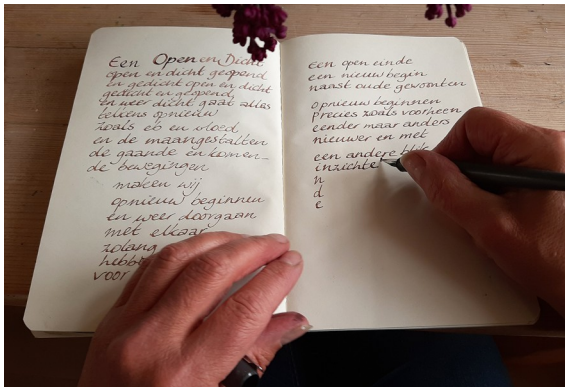 Een Open en Dicht
open en dicht geopend
en gedicht open en dicht
gedicht en geopend
en weer dicht gaat alles
telkens opnieuw
zoals eb en vloed
en de maangestalten
de gaande en komen
de bewegingen
maken wij
opnieuw beginnen
en weer doorgaan
met elkaar
zolang
voor
Een open einde
een nieuw begin
naast oude gewoonten
opnieuw beginnen
precies zoals voorheen
eender maar anders
nieuwer en met
een andere
inzichte
n
d
e